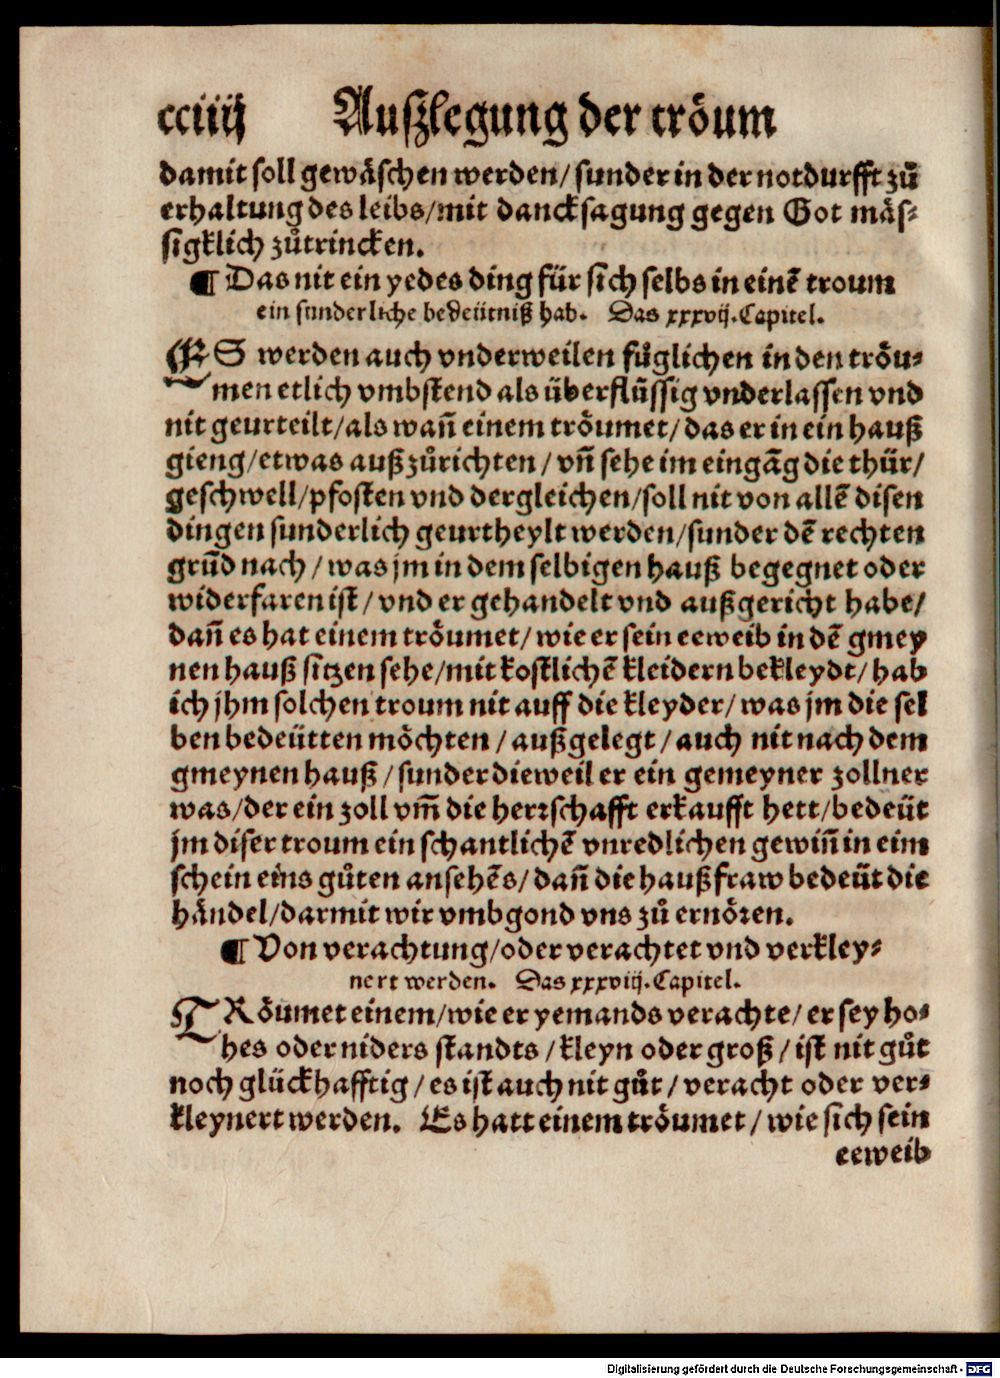 cciiij Auſzlegung der tröum
damit ſoll gewäſchen werden/ſunder in der notdurfft zuͦ
erhaltung des leibs/mit danckſagung gegen Got mäſ⸗
ſigklich zuͦtrincken.
¶ Das nit ein yedes ding für ſich ſelbs in einē troum
ein ſunderliche bedeütniß hab. Das xxxvij. Capitel.
ES werden auch vnderweilen fuͤglichen in den tröu⸗
men etlich vmbſtend als überflüſſig vnderlaſſen vnd
nit geurteilt/als wañ einem tröumet/das er in ein hauß
gieng/etwas auß zuͦrichten/vñ ſehe im eingāg die thür/
geſchwell/pfoſten vnd dergleichen/ſoll nit von allē diſen
dingen ſunderlich geurtheylt werden/ſunder dē rechten
grūd nach/was jm in dem ſelbigen hauß begegnet oder
widerfaren iſt/vnd er gehandelt vnd außgericht habe/
dañ es hat einem tröumet/wie er ſein eeweib in dē gmey
nen hauß ſitzen ſehe/mit koſtlichē kleidern bekleydt/hab
ich jhm ſolchen troum nit auff die kleyder/was jm die ſel
ben bedeütten möchten/außgelegt/auch nit nach dem
gmeynen hauß/ſunder dieweil er ein gemeyner zollner
was/der ein zoll vm̄ die herꝛſchafft erkaufft hett/bedeüt
jm diſer troum ein ſchantlichē vnredlichen gewiñ in eim
ſchein eins guͦten anſehēs/dañ die haußfraw bedeüt die
händel/darmit wir vmbgond vns zuͦ ernöꝛen.
¶ Von verachtung/oder verachtet vnd verkley⸗
nert werden. Das xxxviij. Capitel.
TRöumet einem/wie er yemands verachte/er ſey ho⸗
hes oder niders ſtandts/kleyn oder groß/iſt nit guͦt
noch glückhafftig/es iſt auch nit guͦt/veracht oder ver⸗
kleynert werden. Es hatt einem tröumet/wie ſich ſein
eeweib
Digitalisierung gefördert durch die Deutsche Forschungsgemeinschaft - DFG